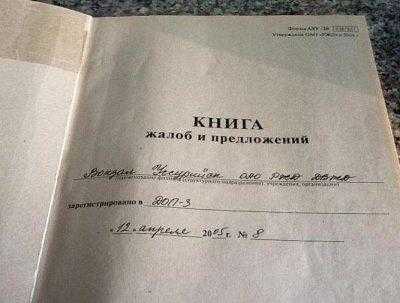 Форма АХУ
Утверждена ОАО «РЖД» в
КНИГА
жалоб и предложений
Вокзал Уссурийск ОАО РЖД ДВЖД
структурного подразделения, учреждения, организации)
зарегистрировано в ДОП-3
«12 апреля 2005 г. № 8